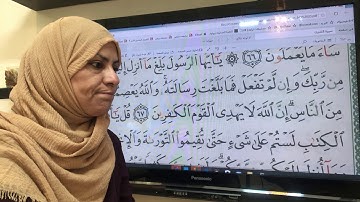 سَآءَ مَا يَعْمَلُونَ ﴿٦٦﴾ ۞ يَـٰٓأَيُّهَا ٱلرَّسُولُ بَلِّغْ مَآ أُنزِلَ
مِن رَّبِّكَ ۖ وَإِن لَّمْ تَفْعَلْ فَمَا بَلَّغْتَ رِسَالَتَهُۥ ۚ وَٱللَّهُ يَعْصِمُ
مِنَ ٱلنَّاسِ ۗ إِنَّ ٱللَّهَ لَا يَهْدِى ٱلْقَوْمَ ٱلْكَـٰفِرِينَ ﴿٦٧﴾ قُلْ
ٱلْكِتَـٰبِ لَسْتُمْ عَلَىٰ شَىْءٍ حَتَّىٰ تُقِيمُوا۟ ٱلتَّوْرَىٰةَ وَٱلْإِنجِ
Panasonic